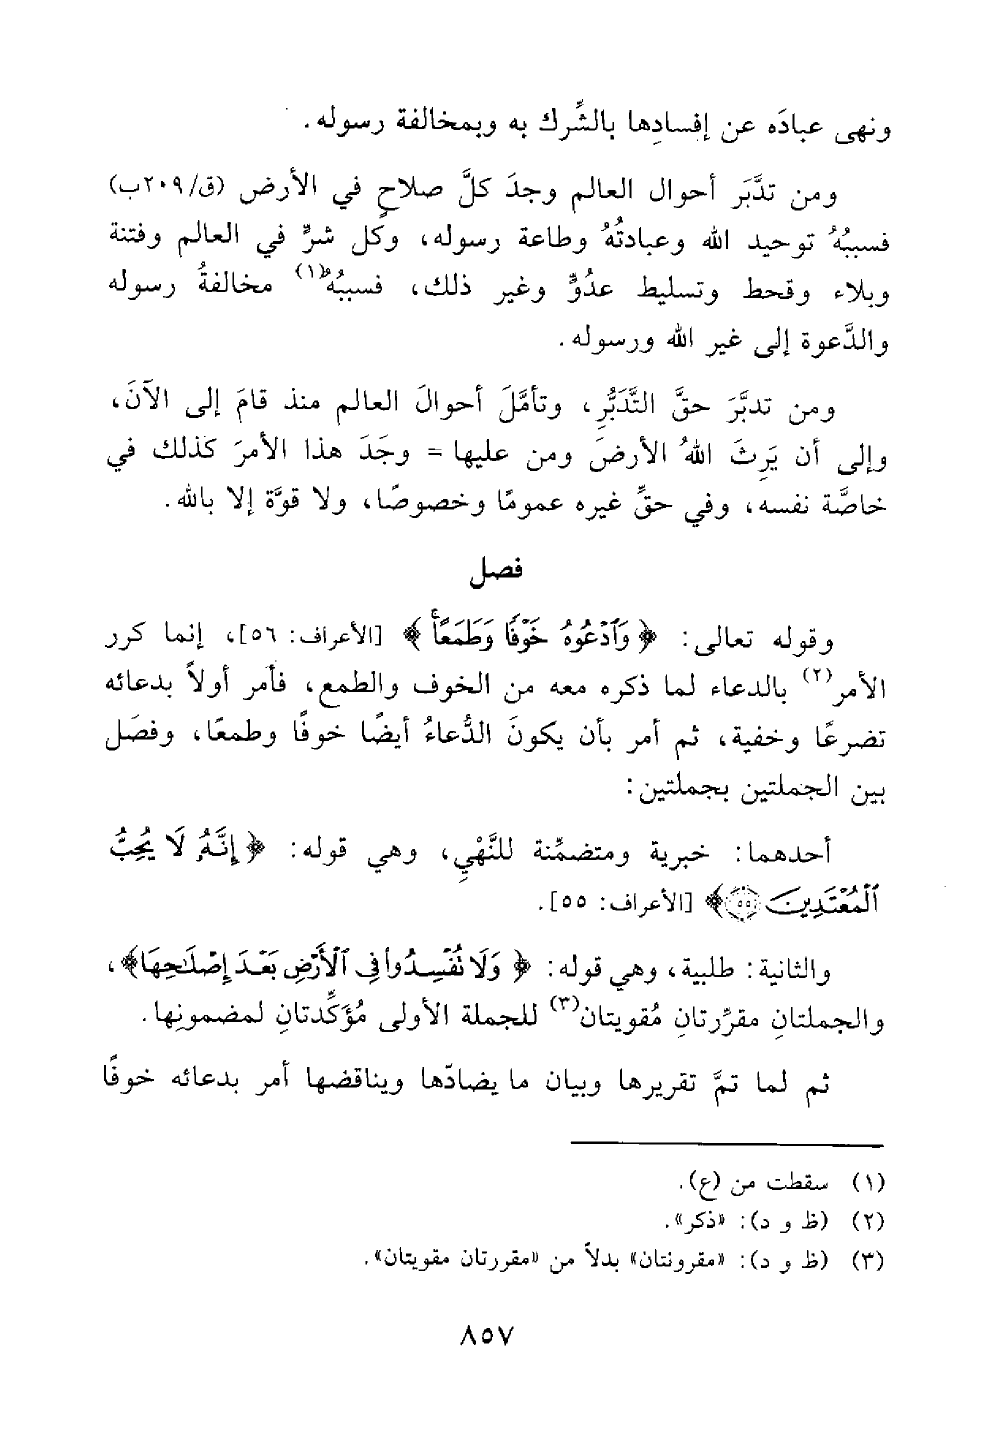 ونهى عبادَه عن إفسادِها بالشِّرك به وبمخالفة رسوله.
ومن تدَّبَر أحوال العالم وجدَ كلَّ صلاحٍ في الأرض (ق/٢٠٩ب)
فسببُهُ توحيد الله وعبادتُهُ وطاعة رسوله، وكل شرٍّ في العالم وفتنة
وبلاء وقحط وتسليط عدُوٍّ وغير ذلك، فسببُهُ(١) مخالفةُ رسوله
والدَّعوة إلى غير الله ورسوله.
ومن تدبَّرَ حقَّ التَّدَبُّرِ، وتأمَّلَ أحوالَ العالم منذ قامَ إلى الآنَ،
وإلى أن يَرِثَ اللهُ الأرضَ ومن عليها = وجَدَ هذا الأمرَ كذلك في
خاصَّة نفسه، وفي حقِّ غيره عمومًا وخصوصًا، ولا قوَّة إلا بالله.
فصل
وقوله تعالى: ﴿وَٱدْعُوهُ خَوْفًا وَطَمَعًاۚ﴾ [الأعراف: ٥٦]، إنما كرر
الأمر(٢) بالدعاء لما ذكره معه من الخوف والطمع، فأمر أولاً بدعائه
تضرعًا وخفية، ثم أمر بأن يكونَ الدُّعاءُ أيضًا خوفًا وطمعًا، وفصَل
بين الجملتين بجملتين:
أحدهما: خبرية ومتضمِّنة للنَّهْيِ، وهي قوله: ﴿إِنَّهُۥ لَا يُحِبُّ
ٱلْمُعْتَدِينَ ۝٥٥﴾ [الأعراف: ٥٥].
والثانية: طلبية، وهي قوله: ﴿وَلَا تُفْسِدُوا۟ فِى ٱلْأَرْضِ بَعْدَ إِصْلَـٰحِهَا﴾،
والجملتانِ مقرِّرتانِ مُقويتان(٣) للجملة الأولى مُؤَكِّدتانِ لمضمونِها.
ثم لما تمَّ تقريرها وبيان ما يضادّها ويناقضها أمر بدعائه خوفًا
(١) سقطت من (ع).
(٢) (ظ و د): «ذكر».
(٣) (ظ و د): «مقرونتان» بدلاً من «مقررتان مقويتان».
٨٥٧